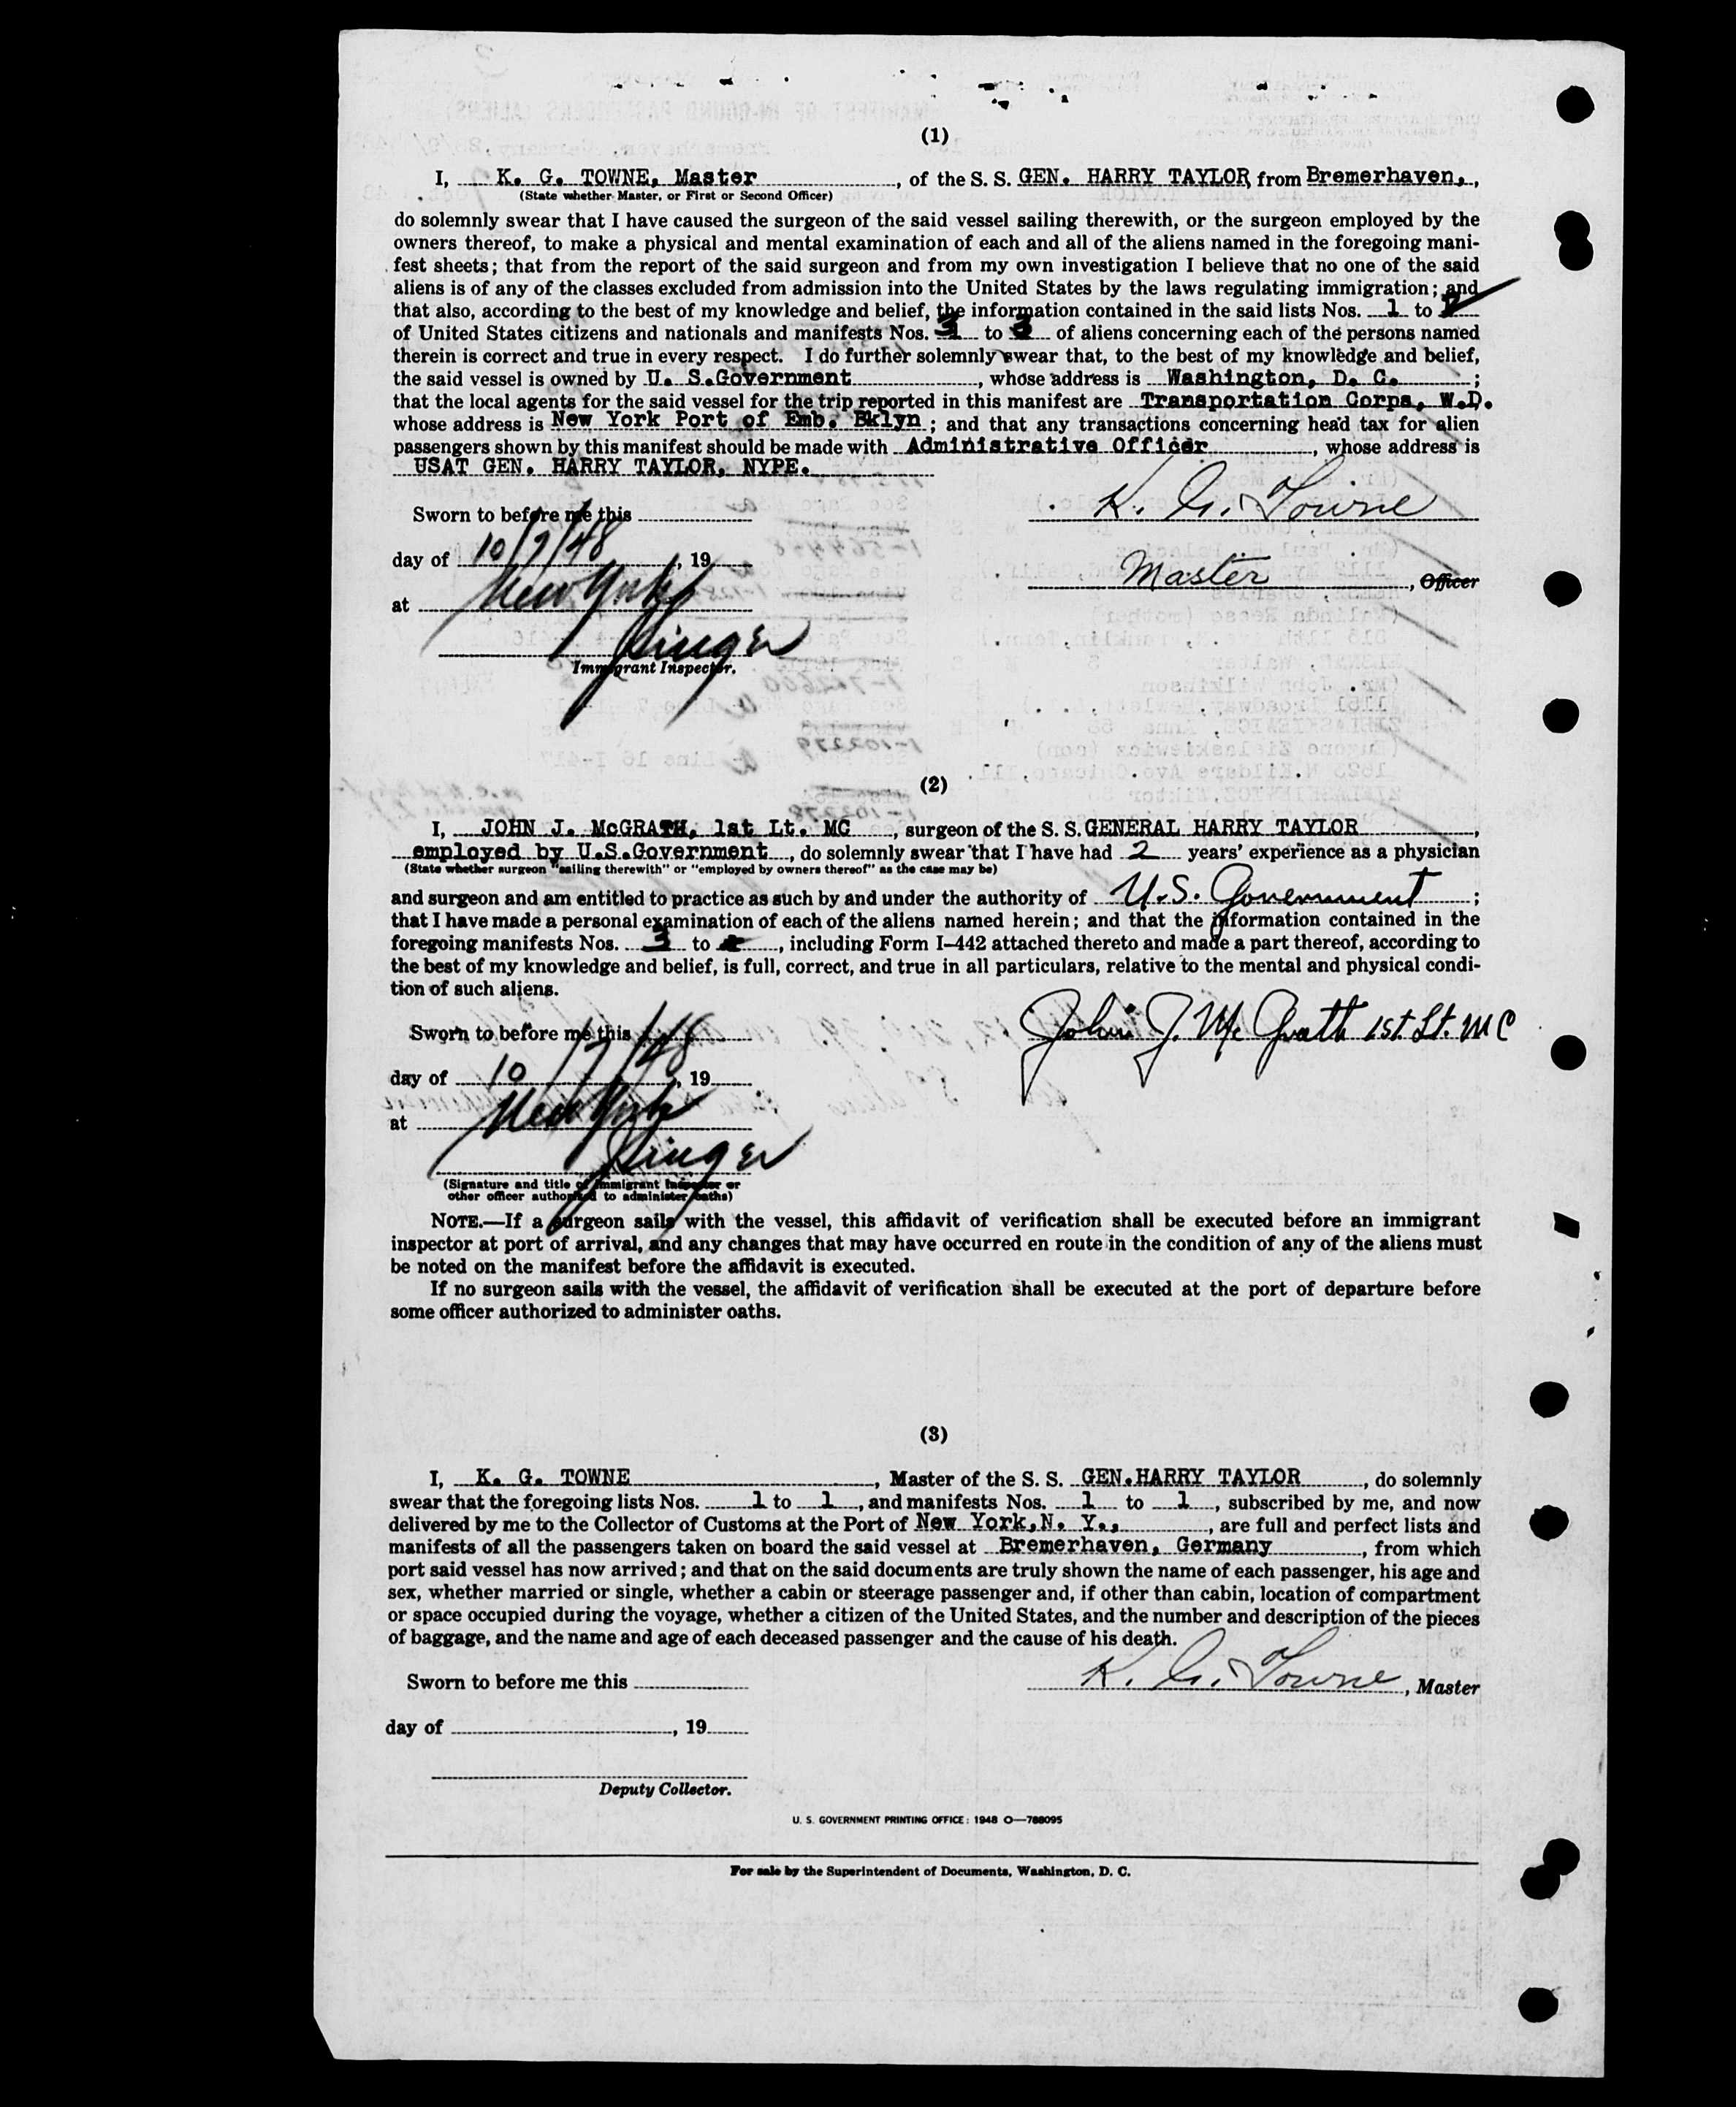 (1)
I, K. G. TOWNE, Master, of the S. S. GEN. HARRY TAYLOR, from Bremerhaven,,
(State whether Master, or First or Second Officer)
do solemnly swear that I have caused the surgeon of the said vessel sailing therewith, or the surgeon employed by the
owners thereof, to make a physical and mental examination of each and all of the aliens named in the foregoing mani-
fest sheets; that from the report of the said surgeon and from my own investigation I believe that no one of the said
aliens is of any of the classes excluded from admission into the United States by the laws regulating immigration; and
that also, according to the best of my knowledge and belief, the information contained in the said lists Nos. 1 to
of United States citizens and nationals and manifests Nos. 3 to 3 of aliens concerning each of the persons named
therein is correct and true in every respect. I do further solemnly swear that, to the best of my knowledge and belief,
the said vessel is owned by U. S.Government, whose address is Washington, D. C. ;
that the local agents for the said vessel for the trip reported in this manifest are Transportation Corps, W.D.
whose address is New York Port of Emb. Bklyn ; and that any transactions concerning head tax for alien
passengers shown by this manifest should be made with Administrative Officer, whose address is
USAT GEN. HARRY TAYLOR, NYPE.
K. G. Towne
Sworn to before me this
day of 10/7/48, 19
Master, Officer
at New York
Singer
Immigrant Inspector.
(2)
I, JOHN J. McGRATH, 1st Lt. MC, surgeon of the S. S. GENERAL HARRY TAYLOR,
employed by U.S.Government, do solemnly swear that I have had 2 years' experience as a physician
(State whether surgeon "sailing therewith" or "employed by owners thereof" as the case may be)
and surgeon and am entitled to practice as such by and under the authority of U.S. Government ;
that I have made a personal examination of each of the aliens named herein; and that the information contained in the
foregoing manifests Nos. 3 to, including Form I-442 attached thereto and made a part thereof, according to
the best of my knowledge and belief, is full, correct, and true in all particulars, relative to the mental and physical condi-
tion of such aliens.
John J. McGrath 1st. Lt. MC
Sworn to before me this
day of 10/7/48, 19
at New York
Singer
(Signature and title of immigrant inspector or
other officer authorized to administer oaths)
NOTE.—If a surgeon sails with the vessel, this affidavit of verification shall be executed before an immigrant
inspector at port of arrival, and any changes that may have occurred en route in the condition of any of the aliens must
be noted on the manifest before the affidavit is executed.
If no surgeon sails with the vessel, the affidavit of verification shall be executed at the port of departure before
some officer authorized to administer oaths.
(3)
I, K. G. TOWNE, Master of the S. S. GEN.HARRY TAYLOR, do solemnly
swear that the foregoing lists Nos. 1 to 1, and manifests Nos. 1 to 1, subscribed by me, and now
delivered by me to the Collector of Customs at the Port of New York,N. Y.,, are full and perfect lists and
manifests of all the passengers taken on board the said vessel at Bremerhaven, Germany, from which
port said vessel has now arrived; and that on the said documents are truly shown the name of each passenger, his age and
sex, whether married or single, whether a cabin or steerage passenger and, if other than cabin, location of compartment
or space occupied during the voyage, whether a citizen of the United States, and the number and description of the pieces
of baggage, and the name and age of each deceased passenger and the cause of his death.
Sworn to before me this
K. G. Towne, Master
day of , 19
Deputy Collector.
U. S. GOVERNMENT PRINTING OFFICE: 1948 O—788095
For sale by the Superintendent of Documents, Washington, D. C.